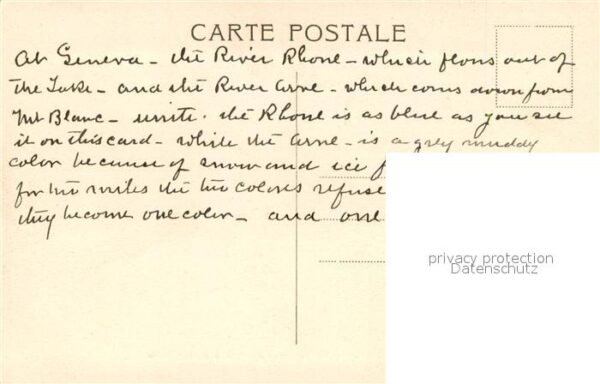 CARTE POSTALE
At Geneva - the River Rhone - which flows out of
the Lake - and the River Arve - which coms down from
Mt Blanc - unite. the Rhone is as blue as you see
it on this card - while the Arve - is a grey muddy
color because of snow and ice
for two miles the two colores refuse
they become one color - and one
privacy protection
Datenschutz